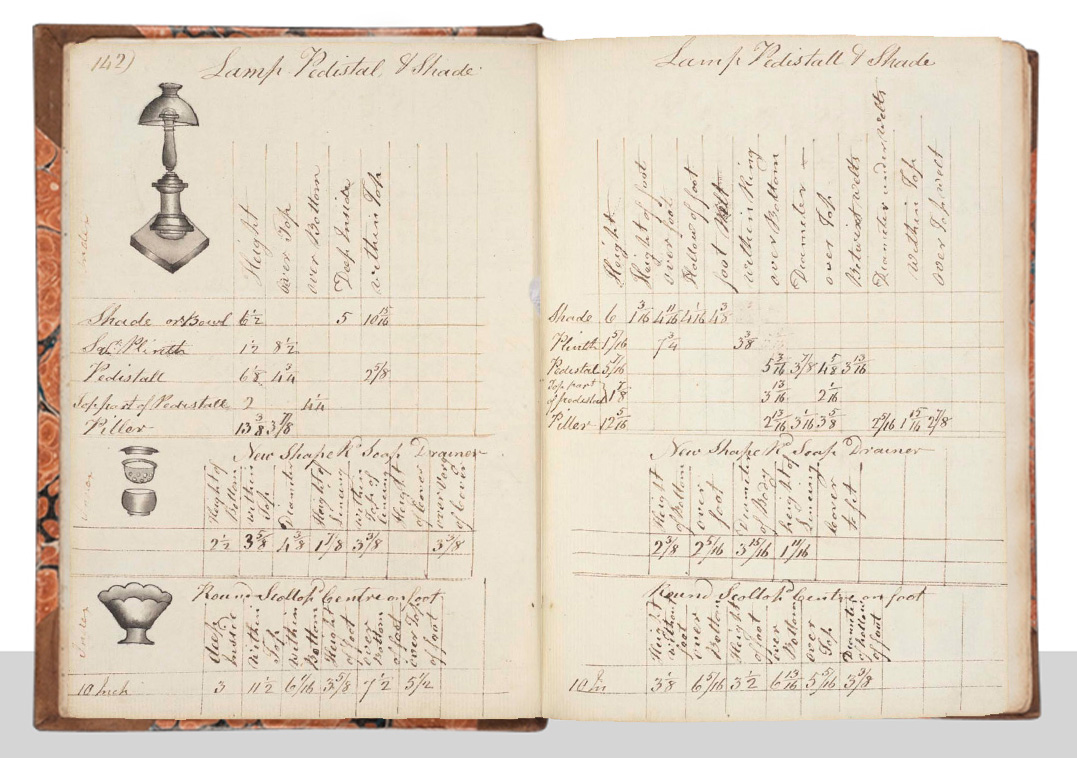 142)
Lamp Pedistal, & Shade
Height
over Top
over Bottom
Deep Inside
within Top
Shade or Bowl 6 1/2 5 10 15/16
Plinth 1 1/2 8 1/2
Pedistall 6 1/8 4 3/4 2 5/8
Top part of Pedistall 2 4 1/4
Piller 13 3/8 3 7/8
New Shape K Soap Drainer
Height of Bottom
within Top
Diameter
Height of
within Top of
Height of cover
over
of cover
2 1/2 3 5/8 4 3/8 1 7/8 3 3/8 3 3/8
Round Scollop Centre on foot
deep Inside
within Top
within Bottom
Height of foot
over Bottom of foot
over Top of foot
10 Inch 3 11 1/2 6 7/16 3 5/8 7 1/2 5 1/2
Lamp Pedistall & Shade
Height
Height of foot
over foot
Hollow of foot
foot Welt
within Ring
over Bottom
Diameter —
over Top
Betwixt welts
Diameter under Welts
within Top
over Top welt
Shade 6 1 3/16 4 11/16 4 1/16 4 3/8
Plinth 1 5/16 7 3/4 3 3/8
Pedistal 5 7/16 5 3/16 3 7/8 4 5/8 3 13/16
Top part of pedistal } 1 7/8 3 3/16 2 1/16
Piller 12 5/16 2 13/16 3 1/16 3 5/8 2 5/16 1 15/16 2 7/8
New Shape K Soap Drainer
Height of Bottom
over foot
Diameter of Body
height of
cover to fit
2 3/8 2 5/16 3 15/16 1 11/16
Round Scollop Centre on foot
Height without foot
over Bottom
Height of foot
over Bottom
over Top
Diameter of hollow of foot
10 In 3 1/8 6 5/16 3 1/2 6 13/16 5 5/16 3 5/8